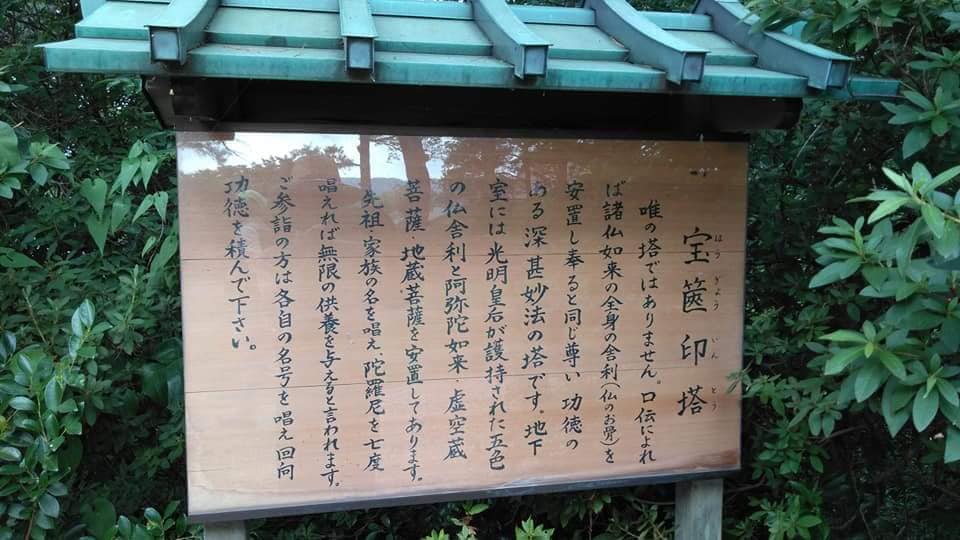 宝篋印塔
ほうぎょういんとう
唯の塔ではありません。口伝によれ
ば諸仏如来の全身の舎利(仏のお骨)を
安置し奉ると同じ尊い 功徳の
ある 深甚妙法の塔です。地下
室には光明皇后が護持された五色
の仏舎利と阿弥陀如来・虚空蔵
菩薩 地蔵菩薩を安置してあります。
先祖・家族の名を唱え、陀羅尼を七度
唱えれば無限の供養を与えると言われます。
ご参詣の方は各自の名号を唱え回向
功徳を積んで下さい。